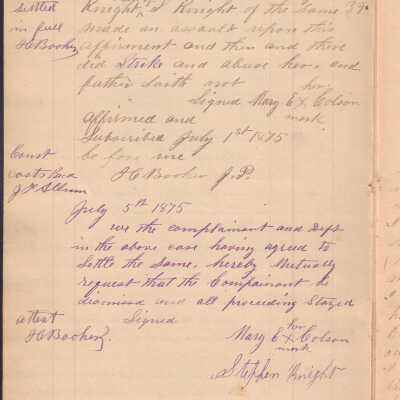 settled
in full
H C Booker
Knight, S Knight of the Same
made an assault upon this
affirment and then and there
did Strike and abuse her, and
futher Saith not
her
Signed Mary E X Colson
mark
affirmed and
Subscribed July 1st 1875
be for me
H C Booker J.P.
Const
costs Paid
July 5th 1875
we the complainant and Deft
in the above case having agreed to
Settle the Same, hereby Mutually
request that the Complainant be
and all proceeding Stayed
attest
H C Booker
Signed
her
Mary E X Colson
mark
Stephen Knight